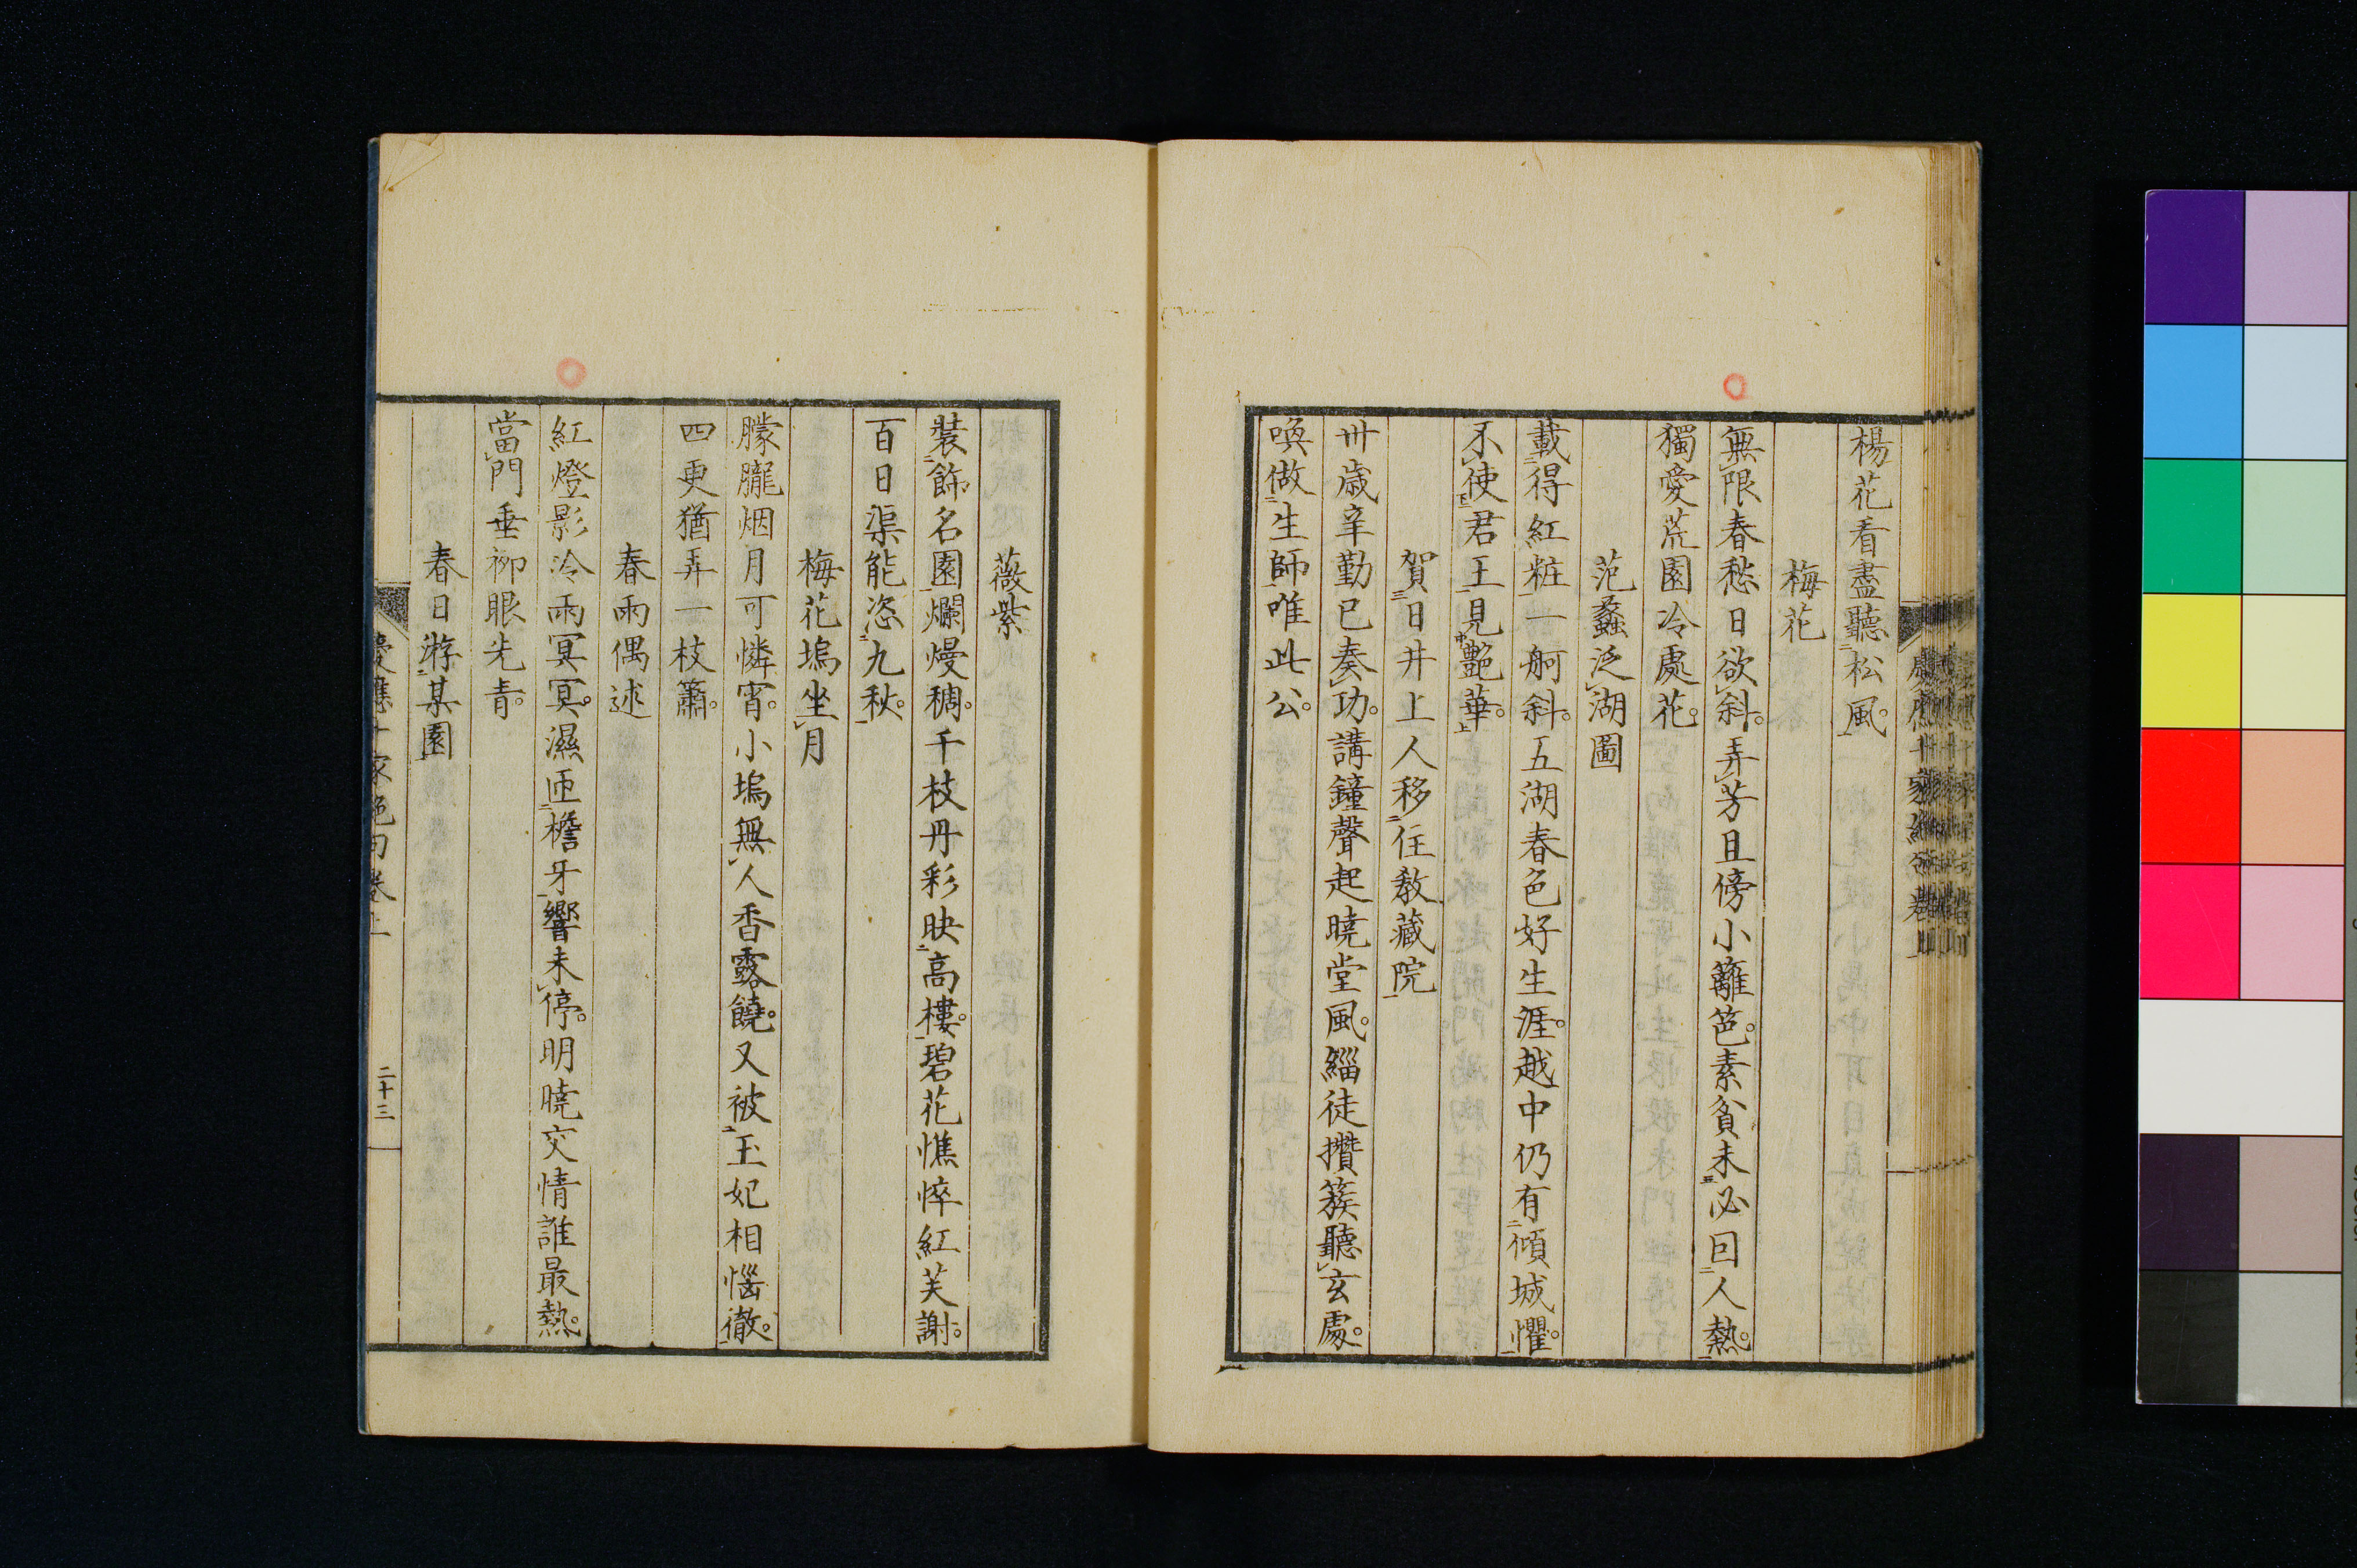 楊花看盡聽松風。
梅花
無限春愁日欲斜。弄芳且傍小籬笆。素貧未必回人熱。
獨愛荒園冷處花。
范蠡泛湖圖
載得紅粧一舸斜。五湖春色好生涯。越中仍有傾城懼。
不使君王見艶華。
賀日井上人移住教藏院
卅歲辛勤已奏功。講鐘聲起曉堂風。緇徒攢簇聽玄處。
喚做生師唯此公。
薇紫
裝飾名園爛熳稠。千枝丹彩映高樓。碧花憔悴紅芙謝。
百日渠能恣九秋。
梅花塢坐月
朦朧烟月可憐宵。小塢無人香露饒。又被玉妃相惱徹。
四更猶弄一枝簫。
春雨偶述
紅燈影冷雨冥冥。濕匝檐牙響未停。明曉交情誰最熱。
當門垂柳眼先青。
春日游某園
慶應十家絶句卷上
二十三